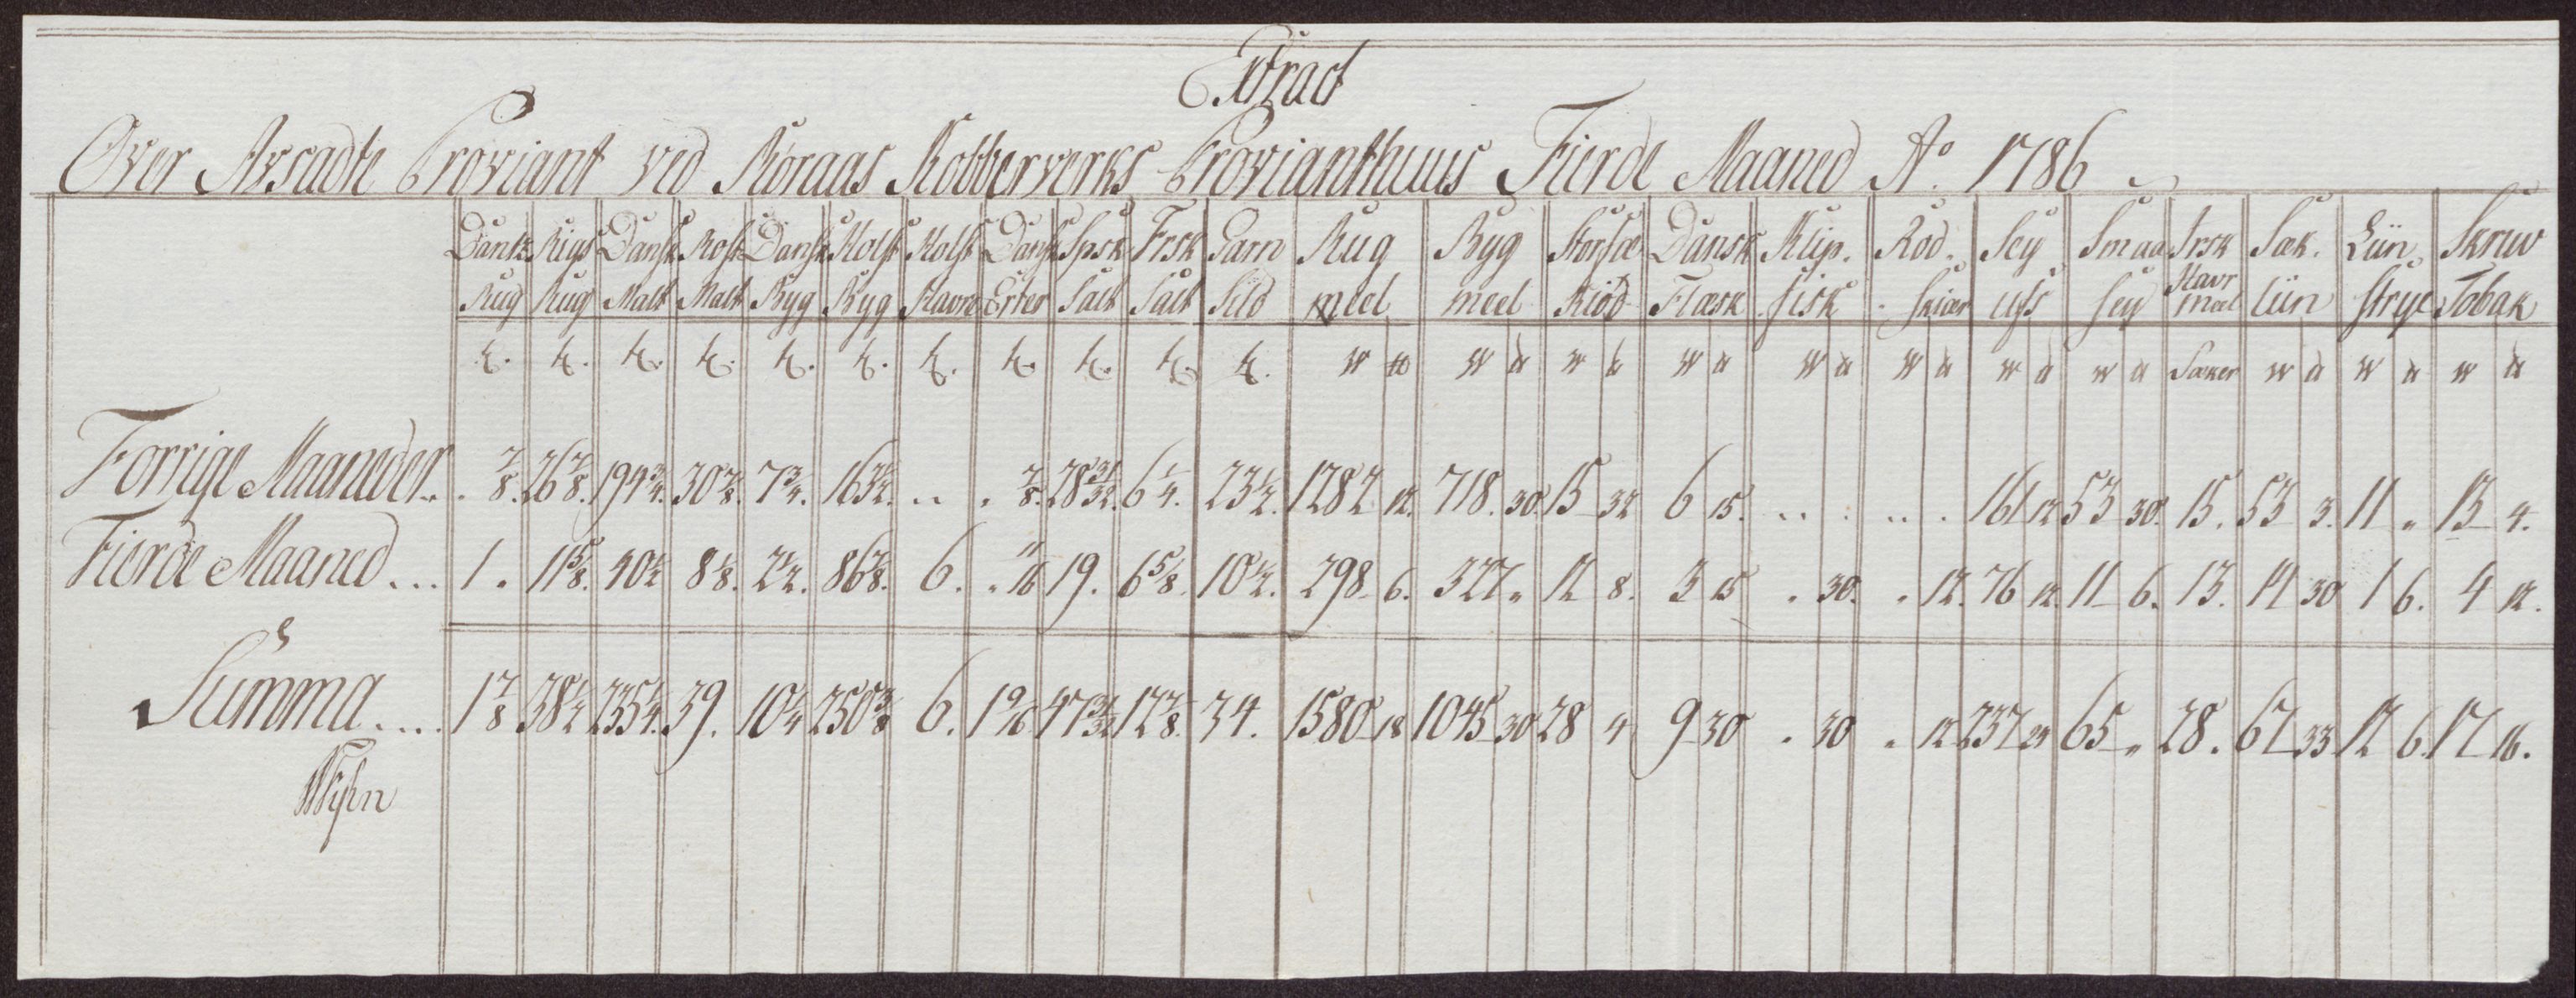 Extract
Over Afsadte Proviant ved Röraas Kobberverks Provianthuus Fierde Maaned Ao. 1786
Dantz Rigs Dansk Holst Dansk Holst Holst Dansk Spsk Frsk Garn Rug Byg Dansk Klip. Röd. Sey Smaa Irsk Sæk. Liin Skruv
Rug Rug Malt Malt Byg Byg Havre Erter Salt Salt Sild meel meel Kiöd Flæsk fisk skiær ufs sey Havr meel liin strye Tobak
Sækker
Forrige Maaneder.. . 7/8. 26 7/8. 194 3/4. 30 7/8. 7 3/4. 163 1/2. .. . 7/8. 28 31/32. 6 1/4. 23 1/2. 1282 12. 718. 30. 15 32 6 15. .. . .. . 161 12 53 30. 15. 53 3. 11 „ 13 4.
Fierde Maaned... 1. 11 5/8. 40 1/2 8 1/8. 2 1/2. 86 7/8. 6. . 11/16 19. 6 5/8. 10 1/2. 298 6. 327 „ 12 8. 3 15 „ 30. „ 12. 76 12. 11 6. 13. 14 30 1 6. 4 12.
Summa.... 1 7/8 38 1/2 235 1/4. 39. 10 1/4 250 3/8 6. 1 9/16 47 31/32 12 7/8. 34. 1580 18 1045 30 28 4 9 30 „ 30 „ 12 237 24 65 „ 28. 67 33 12 6. 17 16.